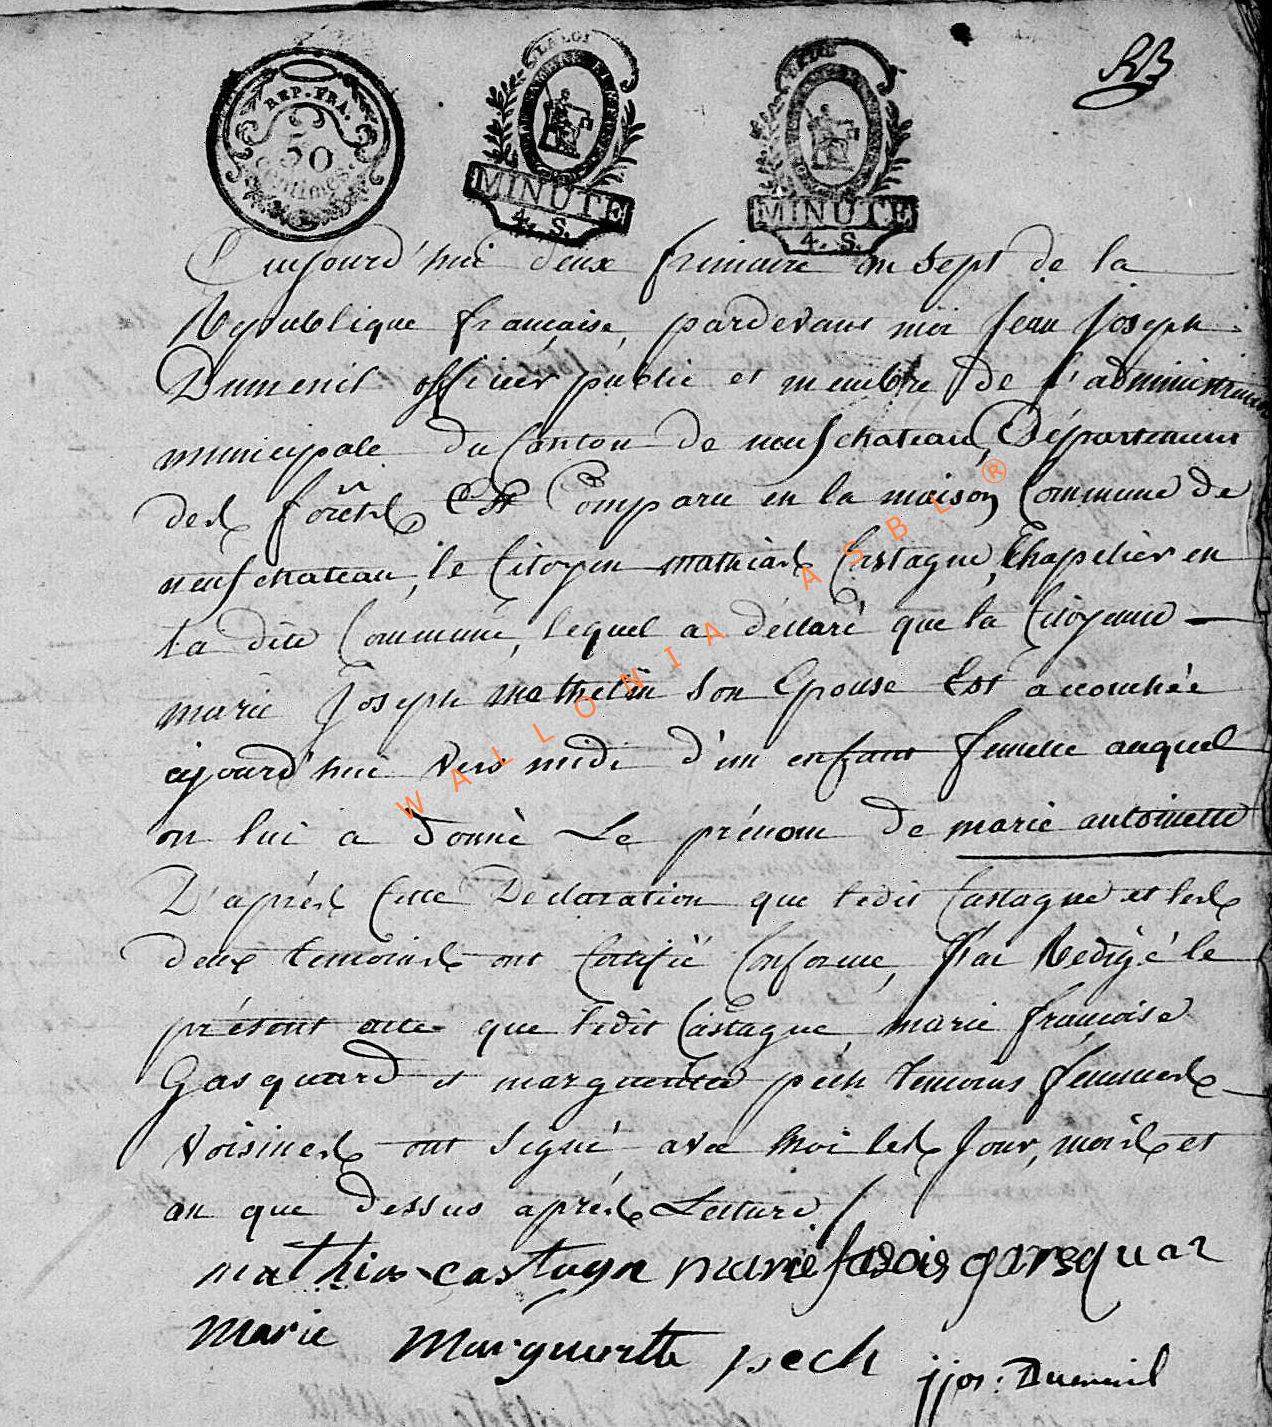 REP. FRA.
50
centimes.
LA LOI
MINUTE
4. S.
MINUTE
4. S.
Aujourd'hui deux frimaire an sept de la
République française, pardevant moi Jean Joseph
Dumenil officier public et membre de l'administration
municipale du Canton de neufchateau, Département
des forêts, Est Comparu en la maison Commune de
neufchateau, le Citoyen mathias Castagne, Chapelier en
la dite Commune, lequel a déclaré que la Citoyenne
marie Joseph mathelin son Epouse Est accouchée
ajourd'hui vers midi d'un enfant femelle auquel
on lui a donné Le prénom de marie antoinette
D'après Cette Déclaration que ledit Castagne et les
deux temoins ont Certifié Conforme, J'ai Redigé le
présent acte que ledit Castagne, marie françoise
Gasquard et margueritte pech temoins femmes
voisines ont signé avec moi les Jour, mois et
an que dessus après Lecture /
mathias castagne marie fasois garsquar
marie margueritte pech
jjos: Dumenil
WALLONIA ASBL ®